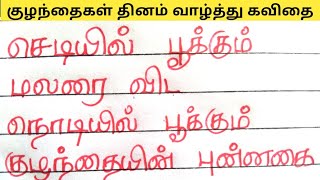 குழந்தைகள் தினம் வாழ்த்து கவிதை
செடியில் பூக்கும்
மலரை விட
நொடியில் பூக்கும்
குழந்தையின் புன்னகை